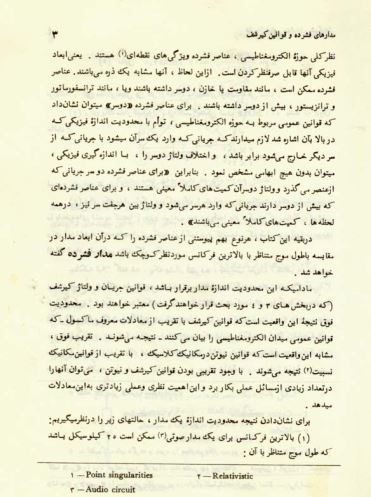 مدارهای فشرده و قوانین کیرشف ۳
نظر کلی حوزهٔ الکترومغناطیسی ، عناصر فشرده ویژگی‌های نقطه‌ای(۱) هستند . یعنی ابعاد
فیزیکی آنها قابل صرفنظر کردن است . ازاین لحاظ ، آنها مشابه یك ذره می‌باشند. عناصر
فشرده ممکن است ، مانند مقاومت یا خازن ، دوسر داشته باشند ویا ، مانند ترانسفورماتور
و ترانزیستور ، بیش از دوسر داشته باشند . برای عناصر فشرده «دوسر» میتوان نشان‌داد
که قوانین عمومی مربوط به حوزه الکترومغناطیسی ، توأم با محدودیت اندازهٔ فیزیکی که
در بالا بآن اشاره شد لازم میدارند که جریانی که وارد یك سر آن میشود با جریانی که از
سر دیگر خارج می‌شود برابر باشد ، و اختلاف ولتاژ دوسر را ، با اندازه گیری فیزیکی ،
میتوان بدون هیچ ابهامی مشخص نمود . بنابراین «برای عناصر فشرده دو سر جریانی که
ازعنصر می گذرد و ولتاژ دوسر آن کمیت‌های کاملاً معینی هستند ، و برای عناصر فشرده‌ای
که بیش از دوسر دارند جریانی که وارد هرسر می‌شود و ولتاژ بین هرجفت سر نیز ، درهمه
لحظه‌ها ، کمیت‌های کاملاً معینی می‌باشند» .
دربقیه این کتاب ، هرنوع بهم پیوستنی از عناصر فشرده را که درآن ابعاد مدار در
مقایسه باطول موج متناظر با بالاترین فرکانس موردنظر کوچك باشد مدار فشرده گفته
خواهد شد .
مادامیکه این محدودیت اندازهٔ مدار برقرار باشد ، قوانین جریان و ولتاژ کیرشف
(که دربخش‌های ۳ و ۴ مورد بحث قرار خواهند گرفت) معتبر خواهند بود . محدودیت
فوق نتیجهٔ این واقعیت است که قوانین کیرشف با تقریب از معادلات معروف ماکسول ـ که
قوانین عمومی میدان الکترومغناطیسی را بیان می‌کنند ـ نتیجه می‌شوند . تقریب فوق ،
مشابه این واقعیت است که قوانین نیوتن در مکانیك کلاسیك ، با تقریب از قوانین مکانیك
نسبیت(۲) نتیجه می‌شوند . با وجود تقریبی بودن قوانین کیرشف و نیوتن ، می‌توان آنها را
درتعداد زیادی ازمسائل عملی بکار برد و این اهمیت نظری وعملی زیادتری به این معادلات
میدهد .
برای نشان‌دادن نتیجه محدودیت اندازهٔ یك مدار ، حالتهای زیر را درنظر میگیریم:
(۱) بالاترین فرکانس برای یك مدار صوتی(۳) ممکن است ۲۰ کیلوسیکل باشد
که طول موج متناظر با آن :
۱ – Point singularities ۲ – Relativistic
۳ – Audio circuit